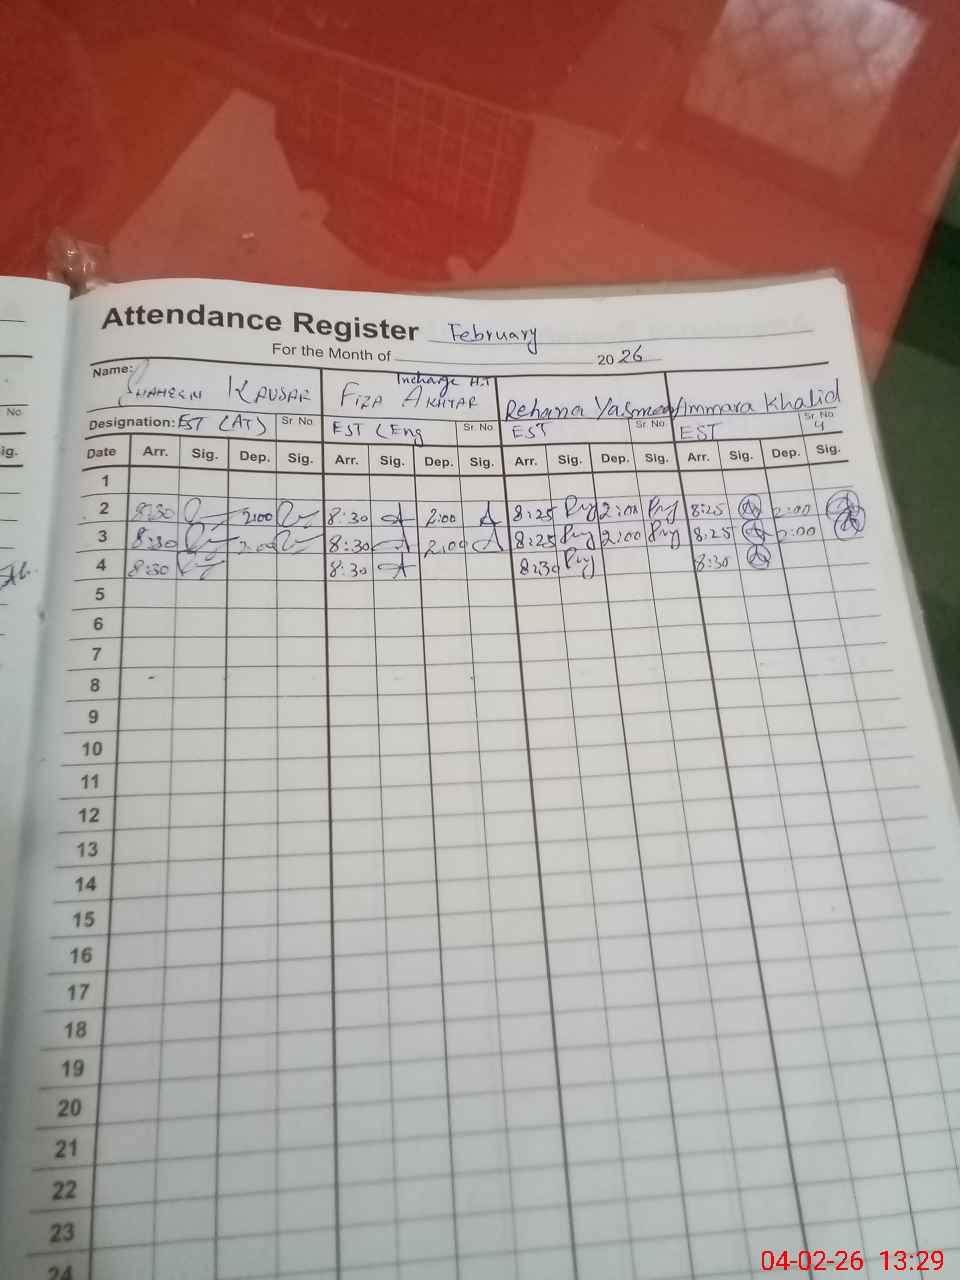 Attendance Register February
For the Month of 2026
Name: SHAHEEN KAUSAR FIZA AKHTAR Incharge H.T Rehana Yasmeen Ammara Khalid
Designation: EST (AT) Sr. No. EST (Eng Sr. No. EST Sr. No. EST Sr. No. 4
Date Arr. Sig. Dep. Sig. Arr. Sig. Dep. Sig. Arr. Sig. Dep. Sig. Arr. Sig. Dep. Sig.
1
2 8:30 2:00 8:30 2:00 8:25 2:00 8:25 2:00
3 8:30 2:00 8:30 2:00 8:25 2:00 8:25 2:00
4 8:30 8:30 8:30 8:30
5
6
7
8
9
10
11
12
13
14
15
16
17
18
19
20
21
22
23
24
No.
ig.
04-02-26 13:29